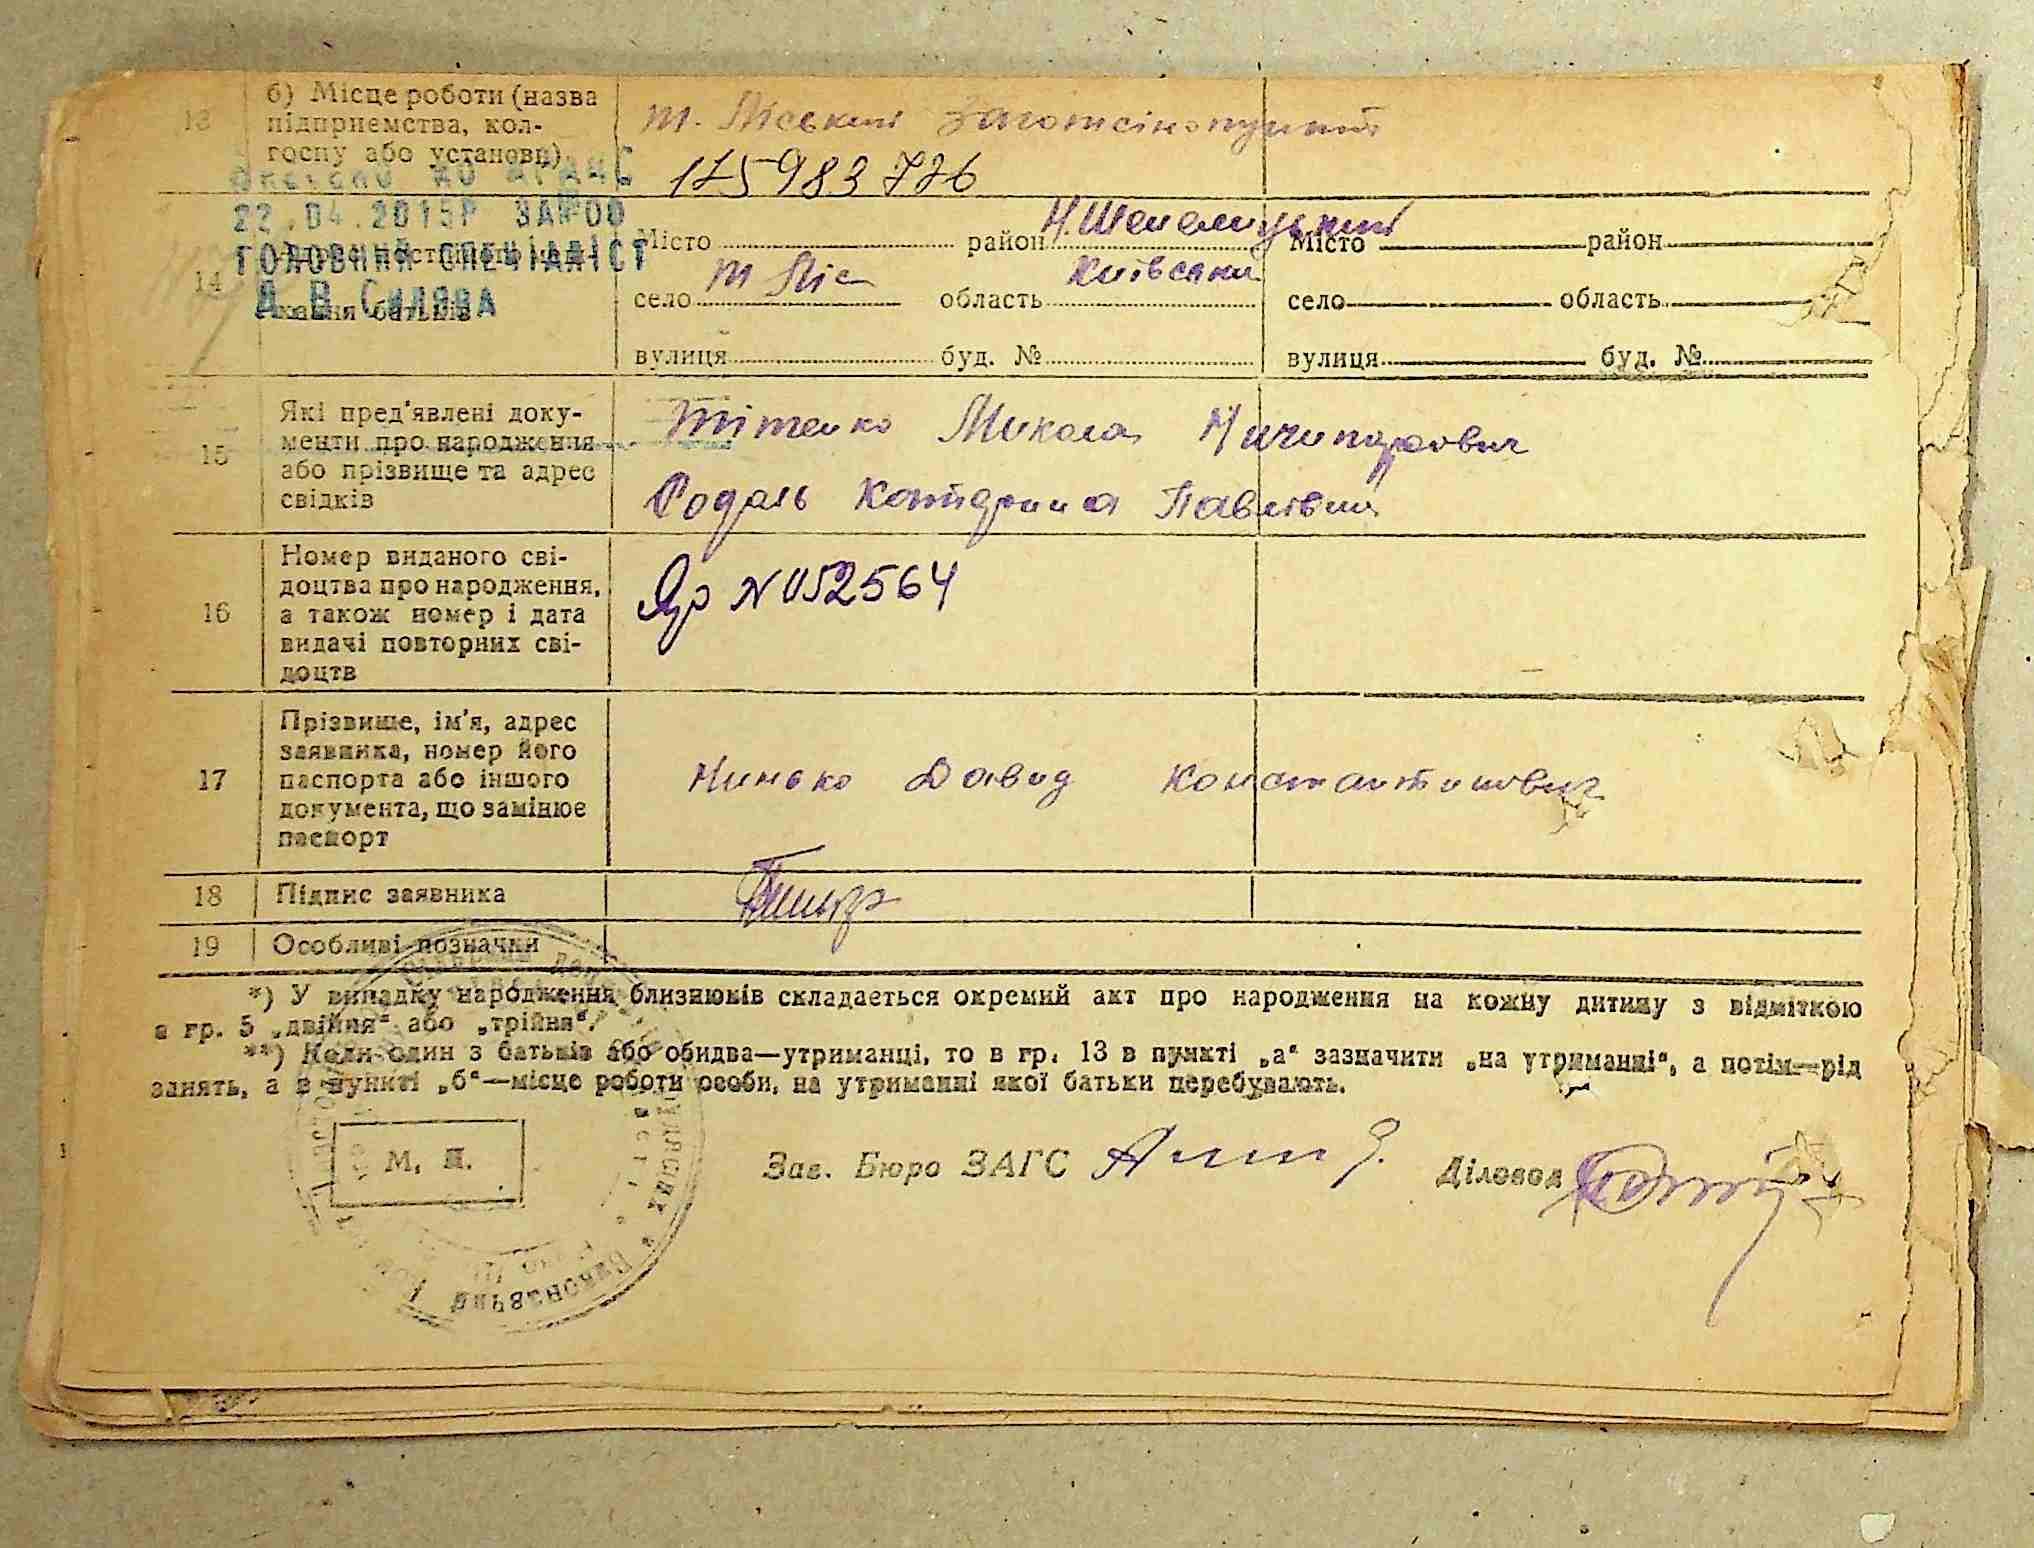 13
б) Місце роботи (назва
підприємства, кол-
госпу або установи)
т. Ліський Заготсінопункт
175983726
Внесено до АРАЦС
22.04.2015Р ЗА№00
ГОЛОВНИЙ СПЕЦІАЛІСТ
14
Місто район Н.Шепелицький
село т Ліс область Київська
вулиця буд. №
Місто район
село область
вулиця буд. №
15
Які пред'явлені доку-
менти про народження
або прізвище та адрес
свідків
Тітенко Микола Ничипорович
Родаль Катерина Павлівна
16
Номер виданого сві-
доцтва про народження,
а також номер і дата
видачі повторних сві-
доцтв
N 052564
17
Прізвище, ім'я, адрес
заявника, номер його
паспорта або іншого
документа, що замінює
паспорт
Минько Давид Константинович
18 Підпис заявника
19 Особливі позначки
*) У випадку народження близнюків складається окремий акт про народження на кожну дитину з відміткою
в гр. 5 „двійня“ або „трійня“.
**) Коли один з батьків або обидва—утриманці, то в гр. 13 в пункті „а“ зазначити „на утриманні“, а потім—рід
занять, а в пункті „б“—місце роботи особи, на утриманні якої батьки перебувають.
М. П.
Зав. Бюро ЗАГС
Діловод